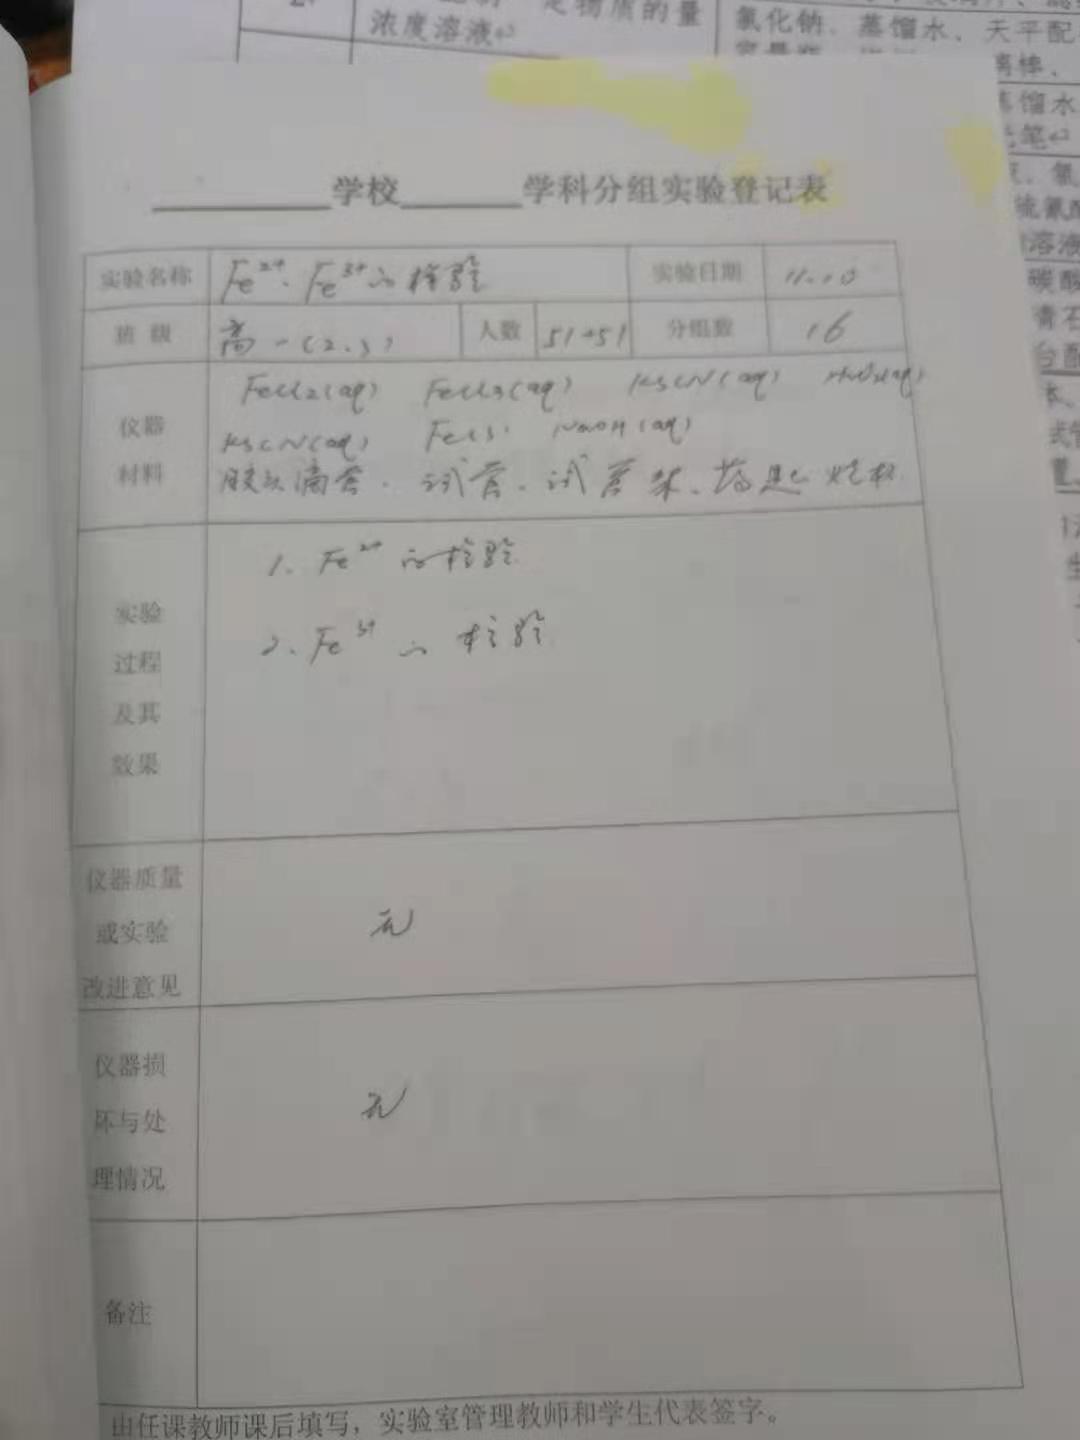 定物质的量
浓度溶液
氯化钠、蒸馏水、天平配
离棒、
蒸馏水
学校 学科分组实验登记表
实验名称 Fe²⁺、Fe³⁺的检验 实验日期 11.10
班级 高一(2.3) 人数 51+51 分组数 16
仪器
材料
FeCl2(aq) FeCl3(aq) KSCN(aq)
KSCN(aq) NaOH(aq)
胶头滴管、试管、试管架、药匙
实验
过程
及其
效果
1、Fe²⁺的检验
2、Fe³⁺的检验
仪器质量
或实验
改进意见
无
仪器损
坏与处
理情况
无
备注
由任课教师课后填写，实验室管理教师和学生代表签字。